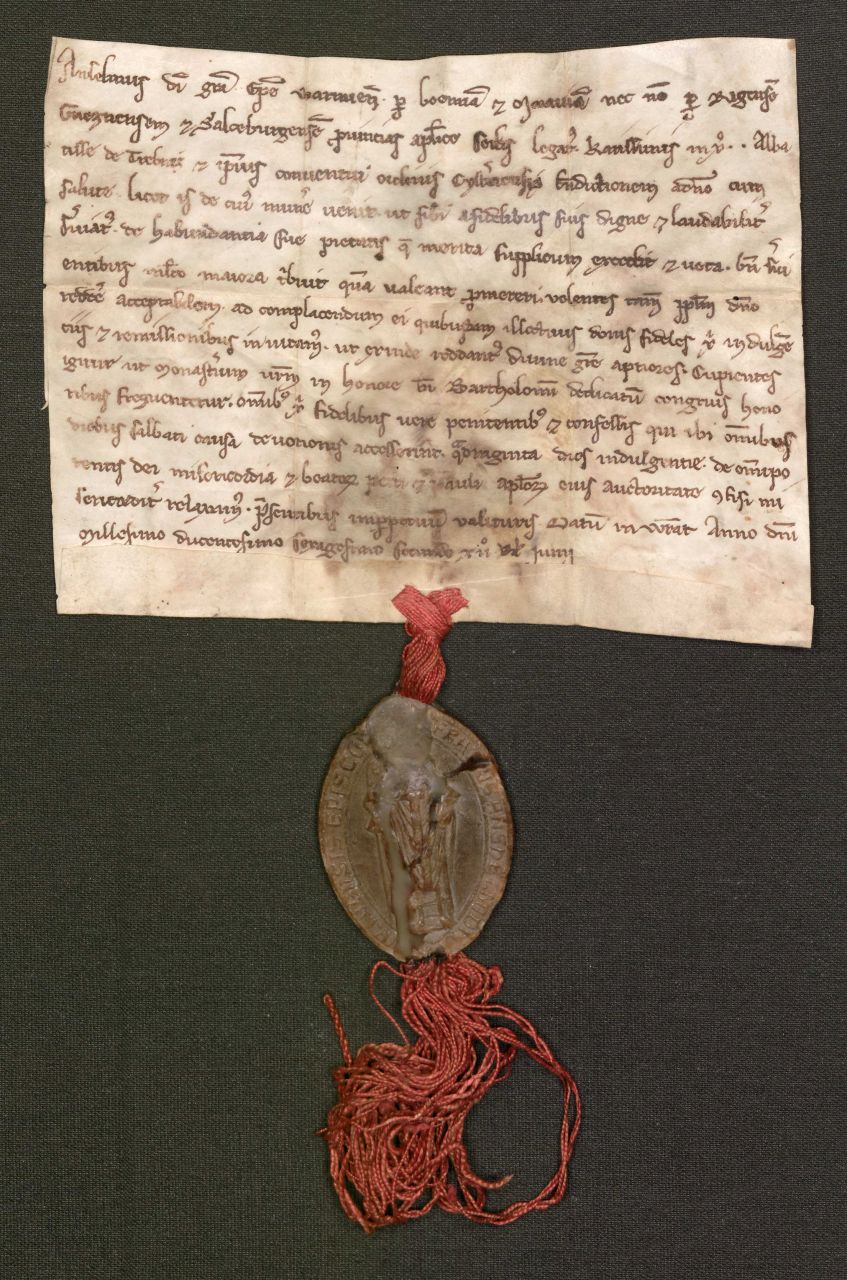 Anselmus di gra Epc Warmien. p boemia ⁊ Morauia nec no p Rigensē
Gneznensem ⁊ Salceburgensē puincias aplice sedis legat. Karissimis in xp̄. . Abba
tisse de Trebnic ⁊ ipsius conuentui ordinis Cysterciensis bndictionem
salute. licet is de cui munē uenit. ut sibi a fidelibus suis digne ⁊ laudabilit
suiat. de habundantia sue pietatis q̄ merita supplicum excedit ⁊ uota. bn̄ sui
entibus mlto maiora tbuit qua ualeant pmereri. uolentes tam ppłm dn̄o
reddē acceptabilem. ad complacendum ei quibusdam illectiuis donis fideles xp̄ indulgē
ciis ⁊ remissionibus inuitam. ut exinde reddant diuine gr̄e aptiores. Cupientes
igitur ut Monastium urm in honore bi Bartholomei dedicatū congruis hono
ribus frequentetur. omib xp̄ fidelibus uere penitentib ⁊ confessis qui ibi omibus
diebus sabbati causa deuotionis accesserint. q̄draginta dies indulgentie. de omipo
tentis dei misericordia ⁊ beator petri ⁊ pauli aplor eius auctoritate ꝯfisi mi
sericordit relaxam. psentibus imppetuū ualituris Datū in Wrat Anno dn̄i
Millesimo ducentesimo sexagesimo secundo kł Iunii
FRA EPISCO